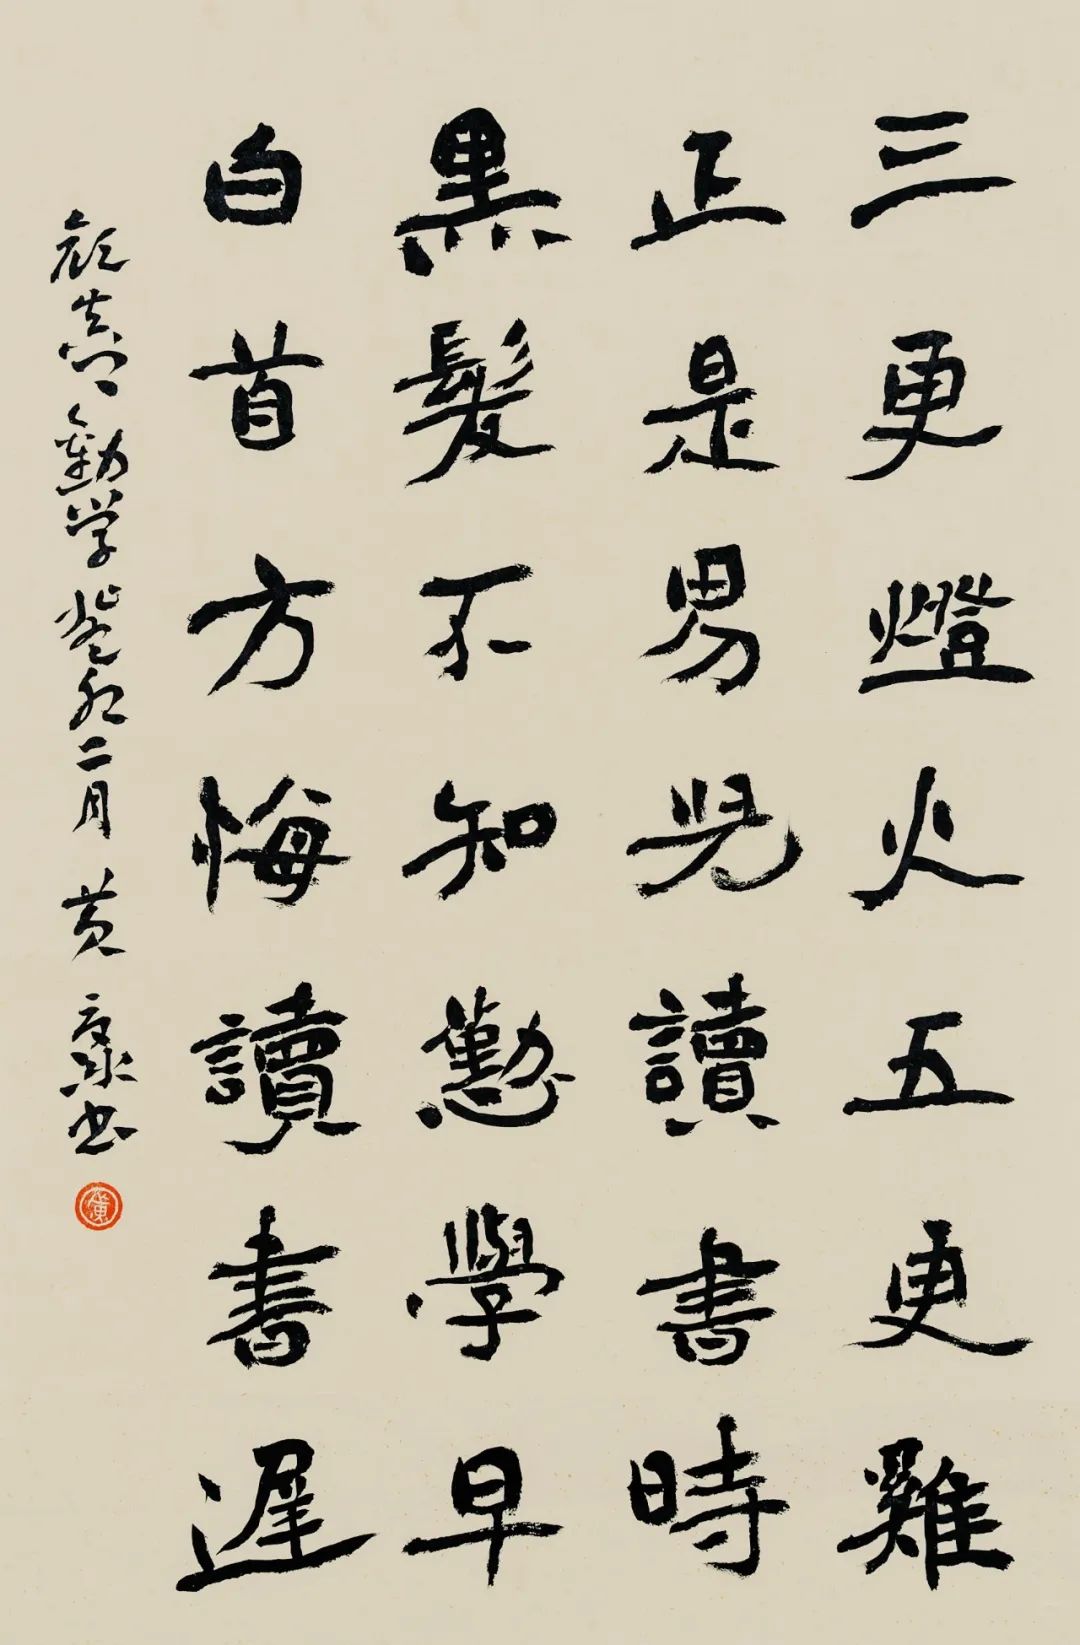 三更燈火五更雞
正是男兒讀書時
黑髮不知懃學早
白首方悔讀書遲
顏真卿勸学癸卯二月黄康书